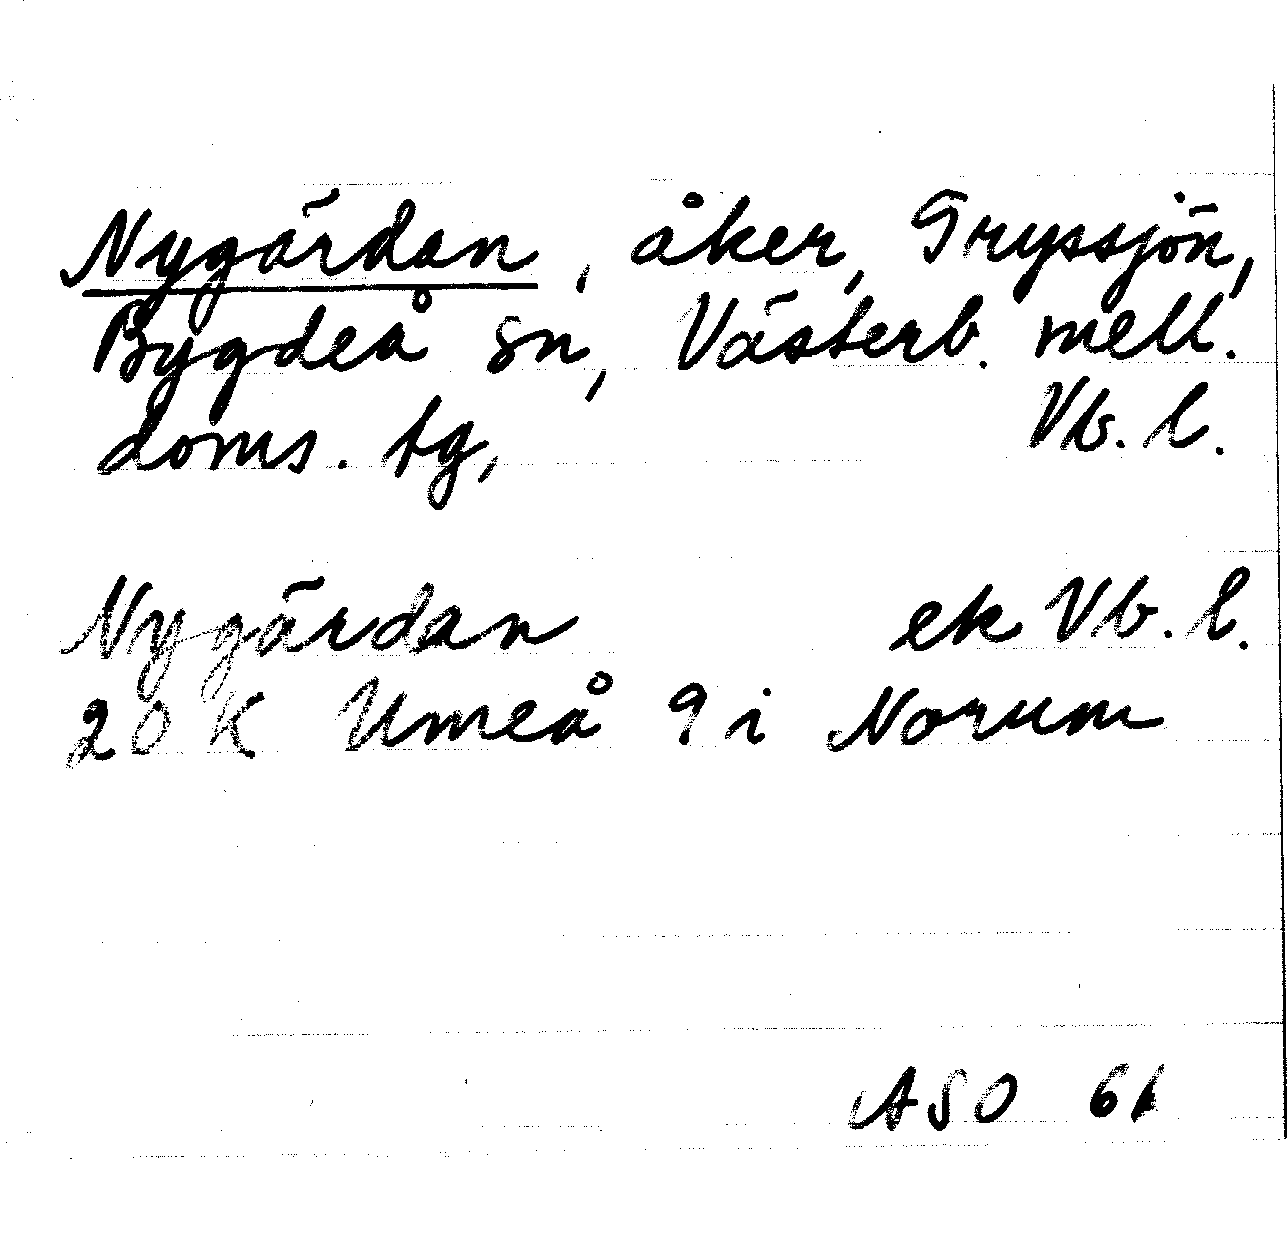 Nygärdan, åker, Gryssjön,
Bygdeå sn, Västerb. mell.
doms. tg, Vb. l.
Nygärdan ek Vb. l.
20 K Umeå 9 i Norum
ASO 61